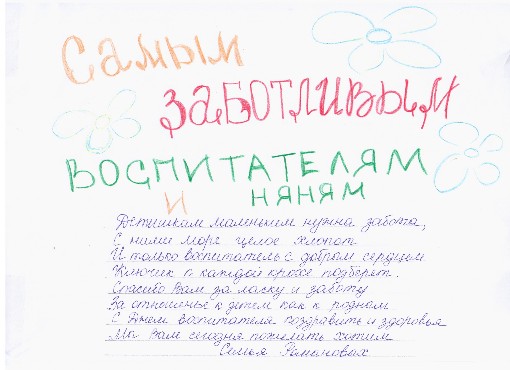 Самым
ЗАБОТЛИВЫМ
ВОСПИТАТЕЛЯМ
И НЯНЯМ
Детишкам маленьким нужна забота,
С ними море целое хлопот
И только воспитатель с добрым сердцем
Ключик к каждой крохе подберёт.
Спасибо Вам за ласку и заботу
За отношенье к детям как к родным
С Днем воспитателя поздравить и здоровья
Мы Вам сегодня пожелать хотим
Семья Романовых